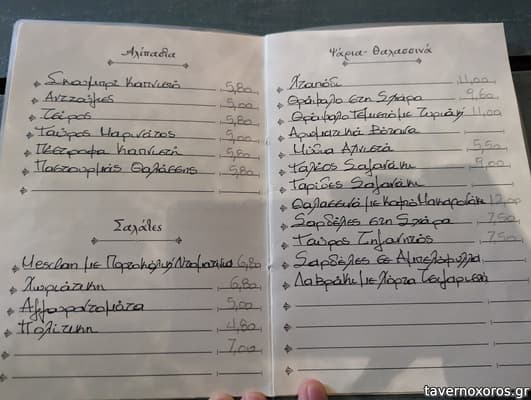 Αλίπαστα
Σκουμπρί Καπνιστό 5,80
Αντζούγιες 5,00
Τσίρος 5,80
Γαύρος Μαρινάτος 5,00
Πέστροφα Καπνιστή 5,80
Παστουρμάς Θαλάσσης 5,80
Σαλάτες
Mesclun με Πορτοκάλι, Ντοματίνια 6,80
Χωριάτικη 6,80
Αγγουροντομάτα 5,00
Πολίτικη 4,80
7,00
Ψάρια - Θαλασσινά
Χταπόδι 11,00
Θράψαλο στη Σχάρα 9,60
Θράψαλο Γεμιστό με Τυριά 11,00
Αρωματικά Βότανα
Μύδια Αχνιστά 5,50
Γαλέος Σαγανάκι 9,00
Γαρίδες Σαγανάκι
Θαλασσινά με Κοφτό Μακαρονάκι 12,00
Σαρδέλες στη Σχάρα 7,50
Γαύρος Τηγανητός 7,50
Σαρδέλες σε Αμπελόφυλλα
Λαβράκι με Χόρτα Τσιγαριστή
tavernoxoros.gr